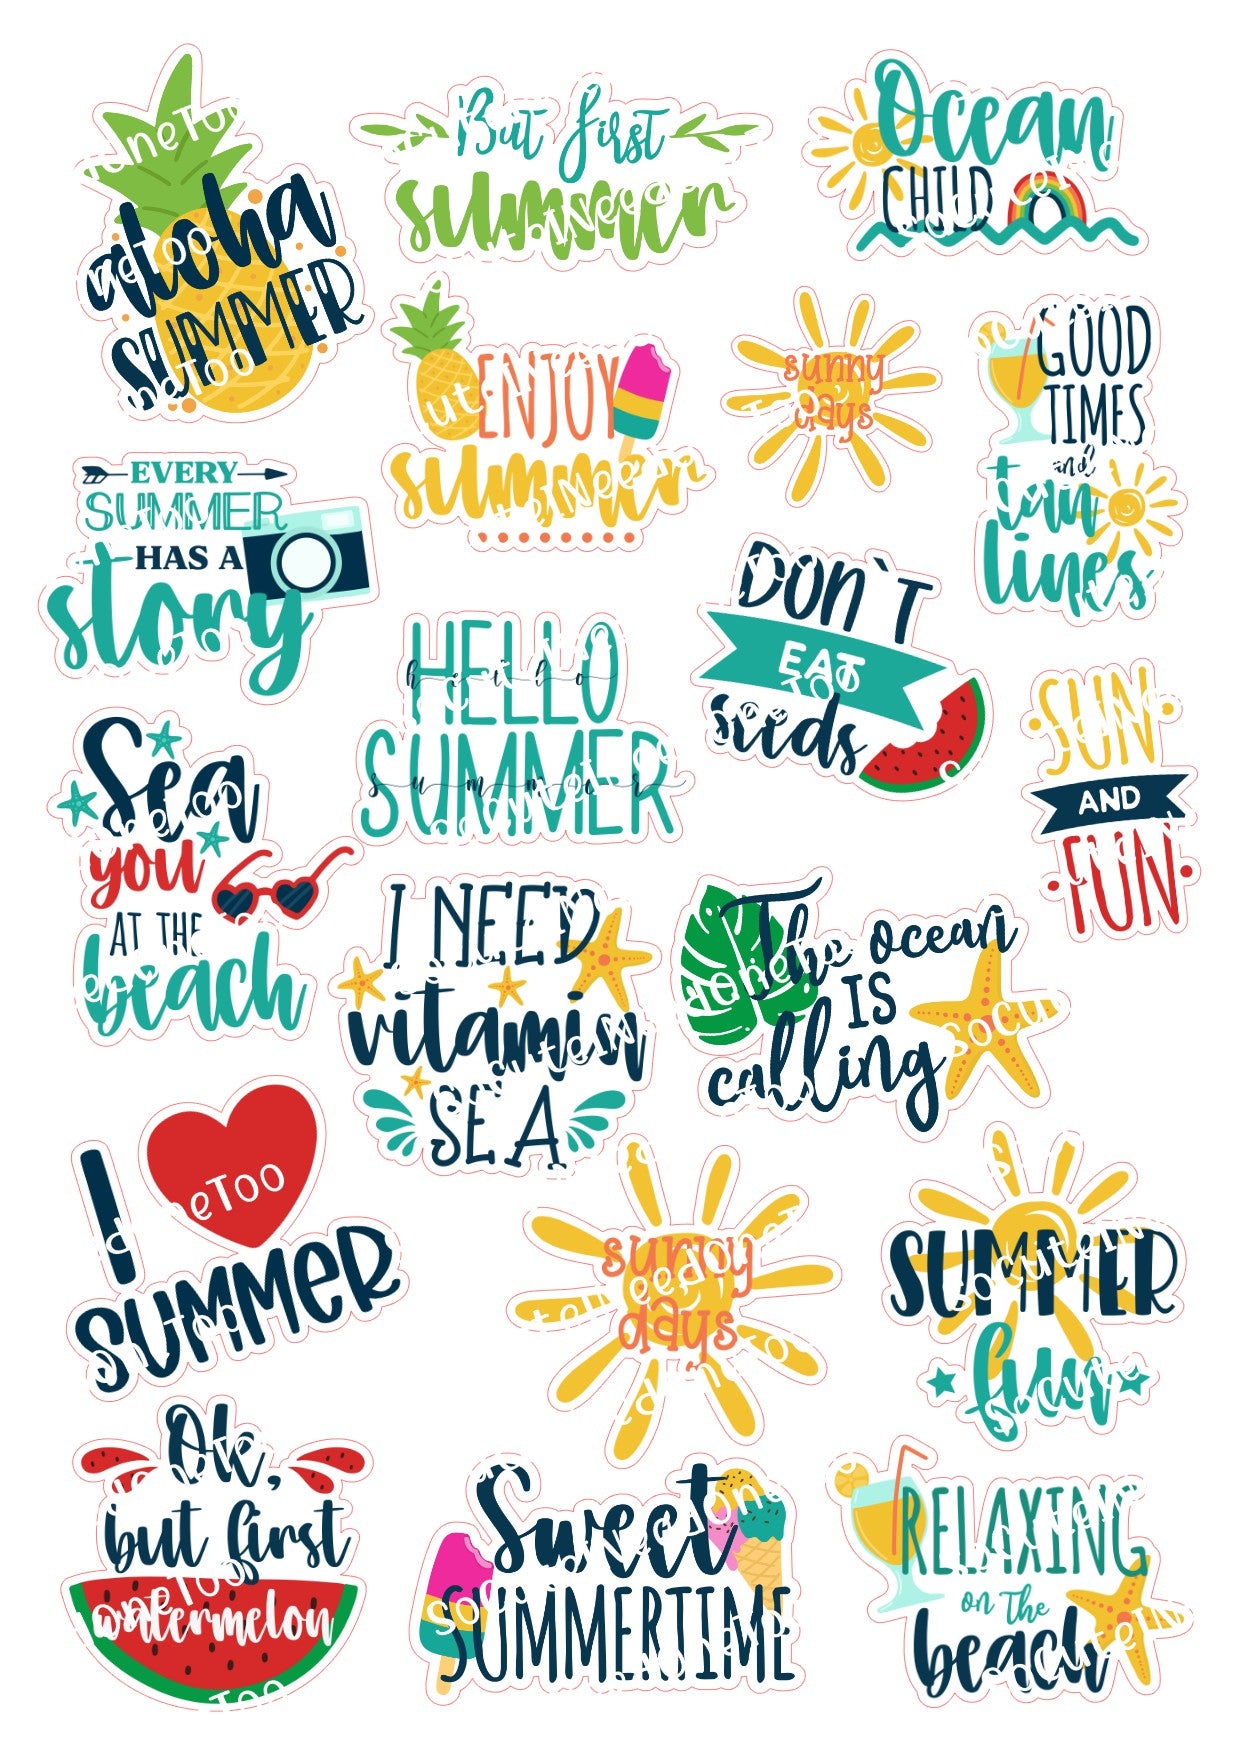 aloha
SUMMER
But first
summer
Ocean
CHILD
ENJOY
summer
sunny
days
GOOD
TIMES
and
tan
lines
EVERY
SUMMER
HAS A
story
HELLO
hello
SUMMER
summer
DON`T
EAT
seeds
SUN
AND
FUN
Sea
you
AT THE
beach
I NEED
vitamin
SEA
The ocean
IS
calling
I
SUMMER
sunny
days
SUMMER
fun
Ok,
but first
watermelon
Sweet
SUMMERTIME
RELAXING
on the
beach